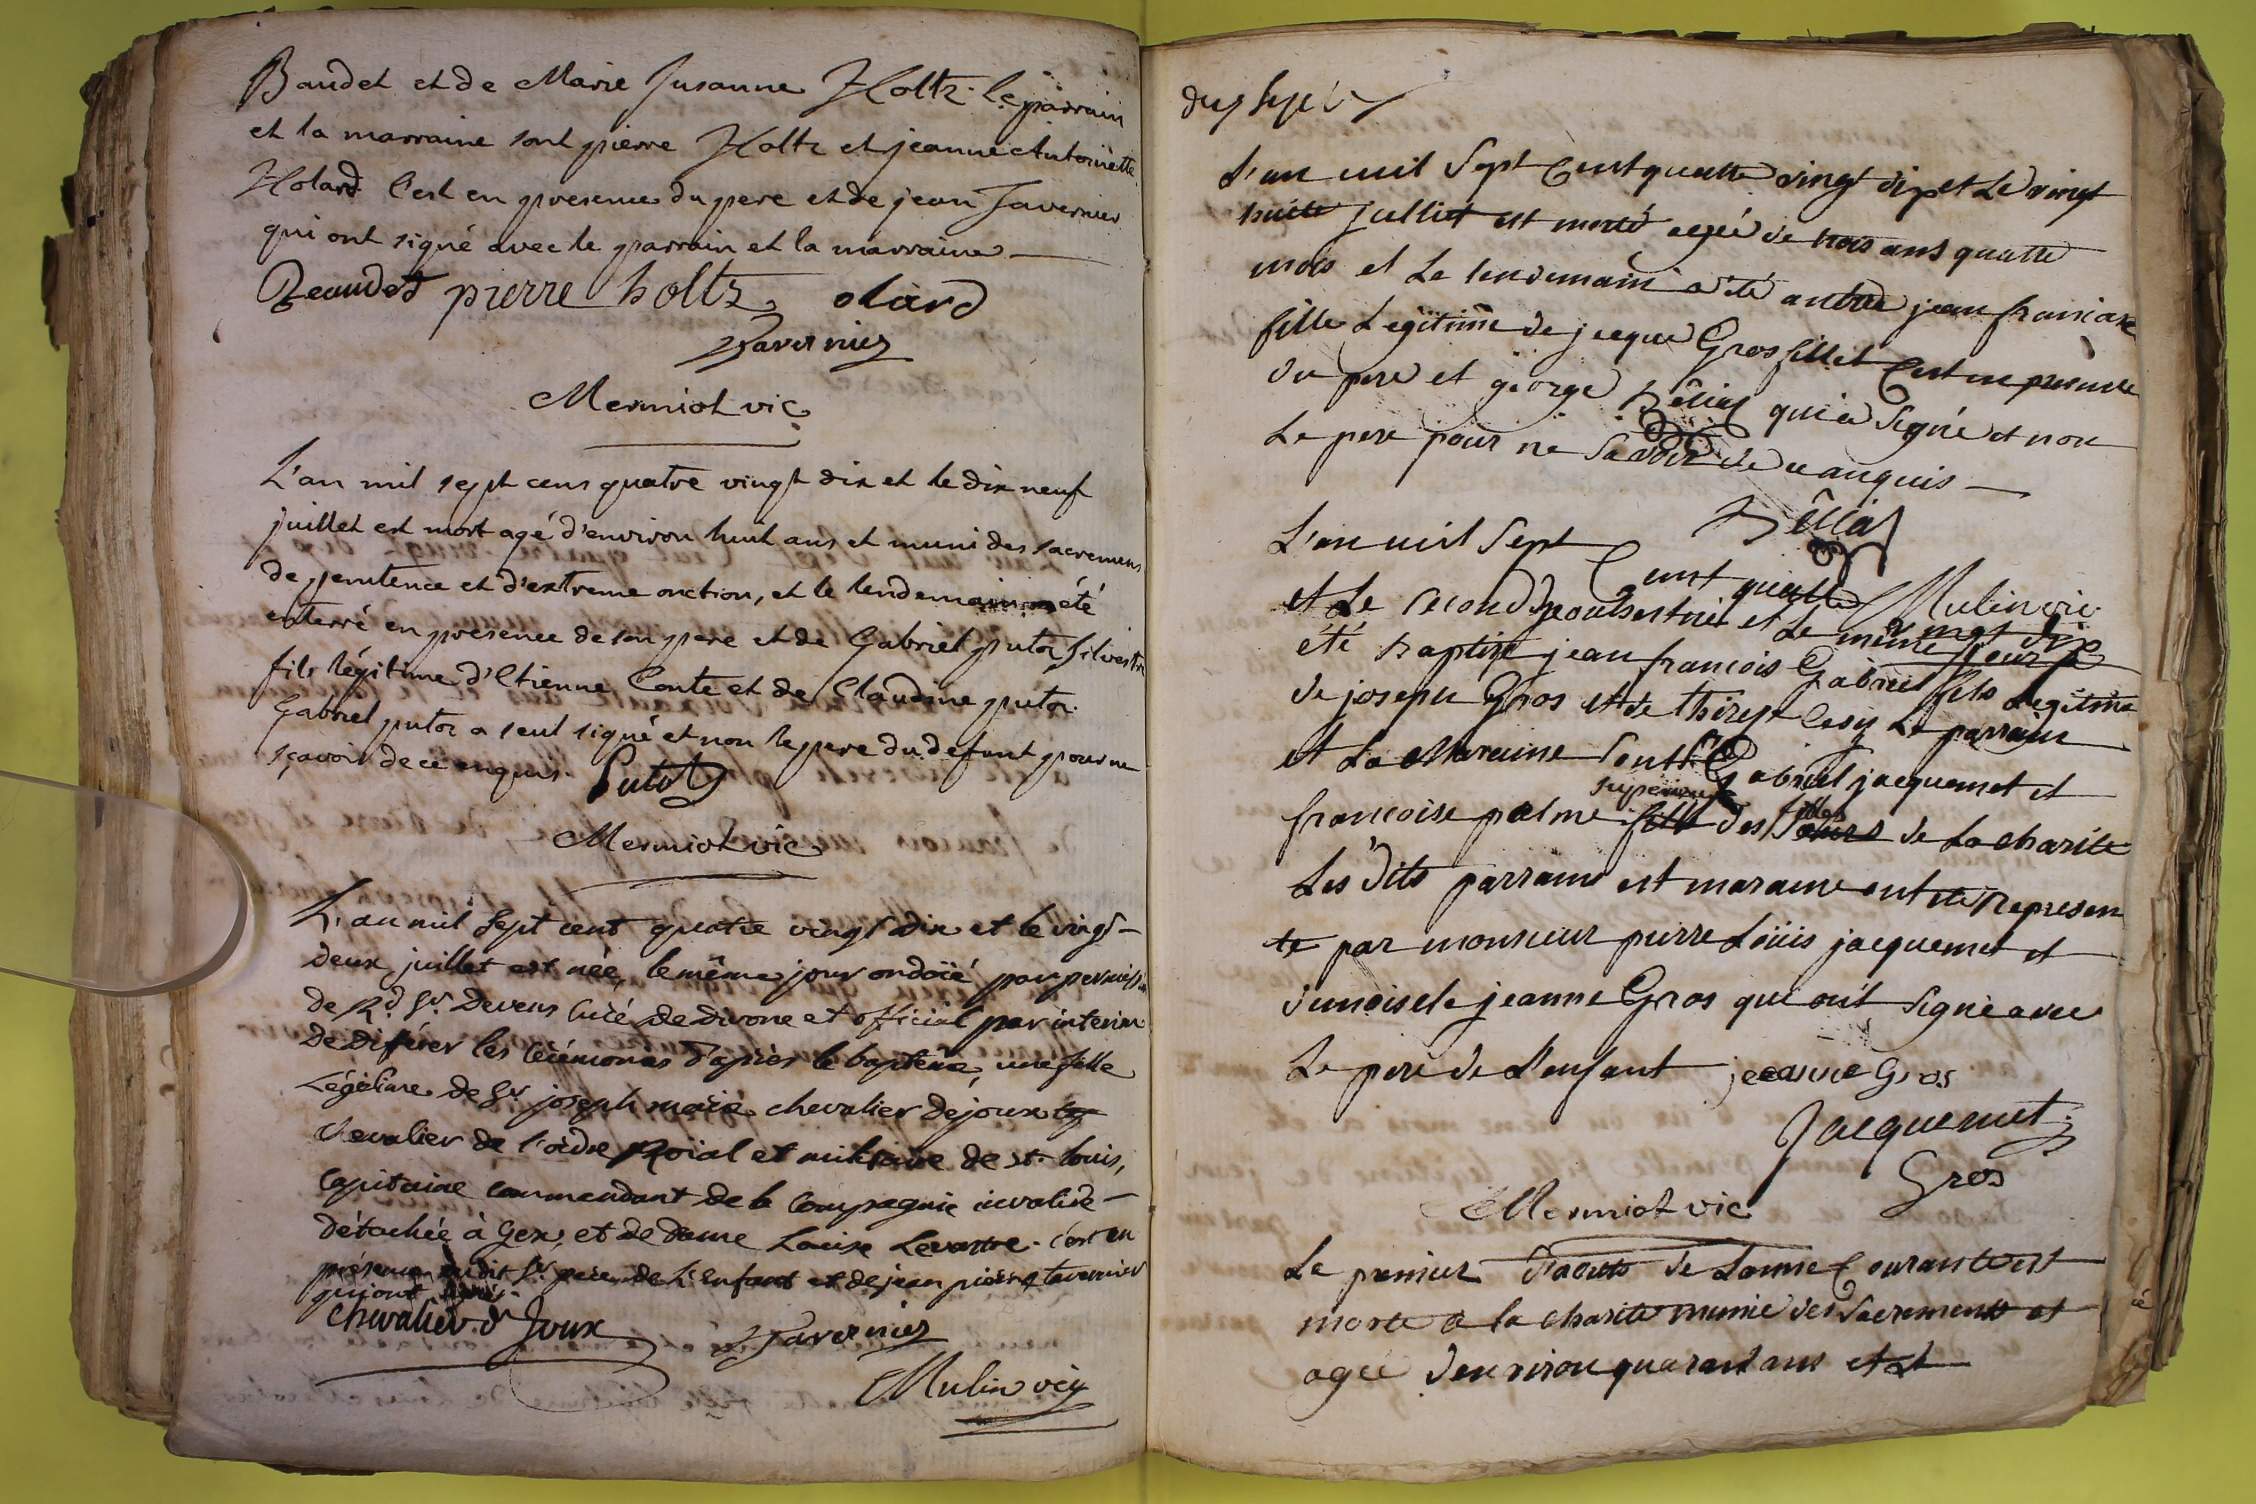 Baudet et de Marie Susanne Holtz. Le parrain
et la marraine sont pierre Holtz et jeanne Antoinette
Holard. C'est en presence du pere et de jean Tavernier
qui ont signé avec le parrain et la marraine
Beaudet pierre holtz olard
Tavernier
Mermiot vic
L'an mil sept cens quatre vingt dix et le dix neuf
juillet est mort agé d'environ huit ans et muni des sacremens
de penitence et d'extreme onction, et le lendemain été
enterré en presence de son pere et de Gabriel putoz, silvestre
fils légitime d'Etienne Conte et de Claudine putoz.
Gabriel putoz a seul signé et non le pere du defunt pour ne
sçavoir de ce enquis. Putod
Mermiot vic
L'an mil sept cent quatre vingt dix et le vingt-
deux juillet est née, le même jour ondoïé par permission
de Rd Sr. Devens Curé de divone et official par interim
de diférer les cérémonies d'après le baptême, une fille
Légitime de Sr joseph marie chevalier dejoux
chevalier de l'ordre Roïal et militaire de st. louis,
Capitaine commendant de la Compagnie invalide-
détachée à Gex, et de dame Louise Levastre. c'est en
présence dudit Sr. pere de L'enfant et de jean pierre tavernier
qui ont signé.
chevalier d Joux Tavernier
Mulin vic
dix sept
L'an mil Sept Cent quatte vingt dix et Le vingt
huite julliet est morte agée de trois ans quatte
mois et Le lendemain a été jean francoise
fille Legitime de jacque Grosfillet C'est en presence
du pere et george Bélias qui a Signé et non
Le pere pour ne Savoir de ce anquis
Bélias
L'an mil Sept Cent quatte vingt dix Mulin vic
et Le second aout est né et Le même jour a
été Baptisé jean francois Gabriel fils Legitime
de joseph Gros et de thérese Le parrain
et La Maraine Sont Gabriel jacquemet et
francoise palme fille superieure des Soeurs filles de La charite
Les dits parrains est maraine ont été Represen
te par monsieur pierre Loüis jacquemet et
dmoiselle jeanne Gros qui ont Signé avec
Le pere de L'enfant jeanne Gros
Jacquemet
Gros
Mermiot vic
Le premier d'aouts de Lanne Courante est
morte a la charite munie des Sacrements et
agee d'environ quarant ans et